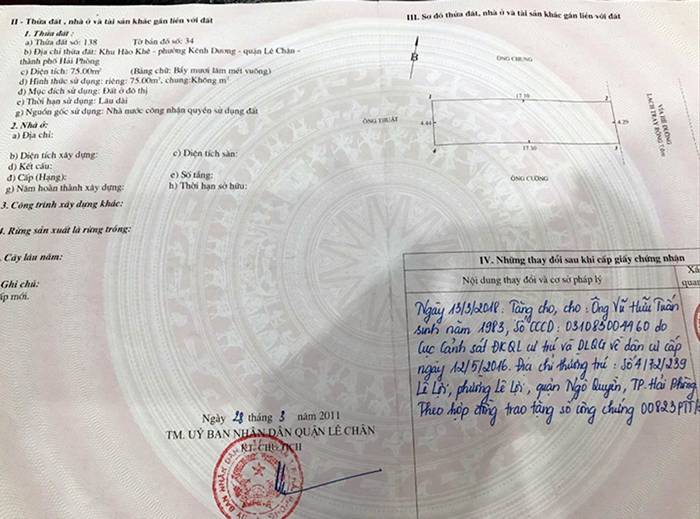 II - Thửa đất, nhà ở và tài sản khác gắn liền với đất
1. Thửa đất:
a) Thửa đất số: 138 Tờ bản đồ số: 34
b) Địa chỉ thửa đất: Khu Hào Khê - phường Kênh Dương - quận Lê Chân -
thành phố Hải Phòng
c) Diện tích: 75.00m² (Bằng chữ: Bảy mươi lăm mét vuông)
d) Hình thức sử dụng: riêng: 75.00m², chung:Không m²
đ) Mục đích sử dụng: Đất ở đô thị
e) Thời hạn sử dụng: Lâu dài
g) Nguồn gốc sử dụng: Nhà nước công nhận quyền sử dụng đất
2. Nhà ở:
a) Địa chỉ:
b) Diện tích xây dựng: c) Diện tích sàn:
d) Kết cấu:
đ) Cấp (Hạng): e) Số tầng:
g) Năm hoàn thành xây dựng: h) Thời hạn sở hữu:
3. Công trình xây dựng khác:
4. Rừng sản xuất là rừng trồng:
. Cây lâu năm:
Ghi chú:
ấp mới.
Ngày 28 tháng 3 năm 2011
TM. UỶ BAN NHÂN DÂN QUẬN LÊ CHÂN
KT. CHỦ TỊCH
III. Sơ đồ thửa đất, nhà ở và tài sản khác gắn liền với đất
B
ÔNG CHUNG
1 17.10 2
ÔNG THUẬT 4.44 4.29
VỈA HÈ ĐƯỜNG
LẠCH TRAY RỘNG
4 17.30 3
ÔNG CƯỜNG
IV. Những thay đổi sau khi cấp giấy chứng nhận
Nội dung thay đổi và cơ sở pháp lý
Xá
quan
Ngày 13/3/2018. Tặng cho, cho: Ông Vũ Hữu Tuấn
sinh năm 1983, Số CCCD: 031083004960 do
Cục Cảnh sát ĐKQL cư trú và DLQG về dân cư cấp
ngày 12/5/2016. Địa chỉ thường trú: Số 4/72/239
Lê Lợi, phường Lê Lợi, quận Ngô Quyền, TP. Hải Phòng
Theo hợp đồng trao tặng số công chứng 00823